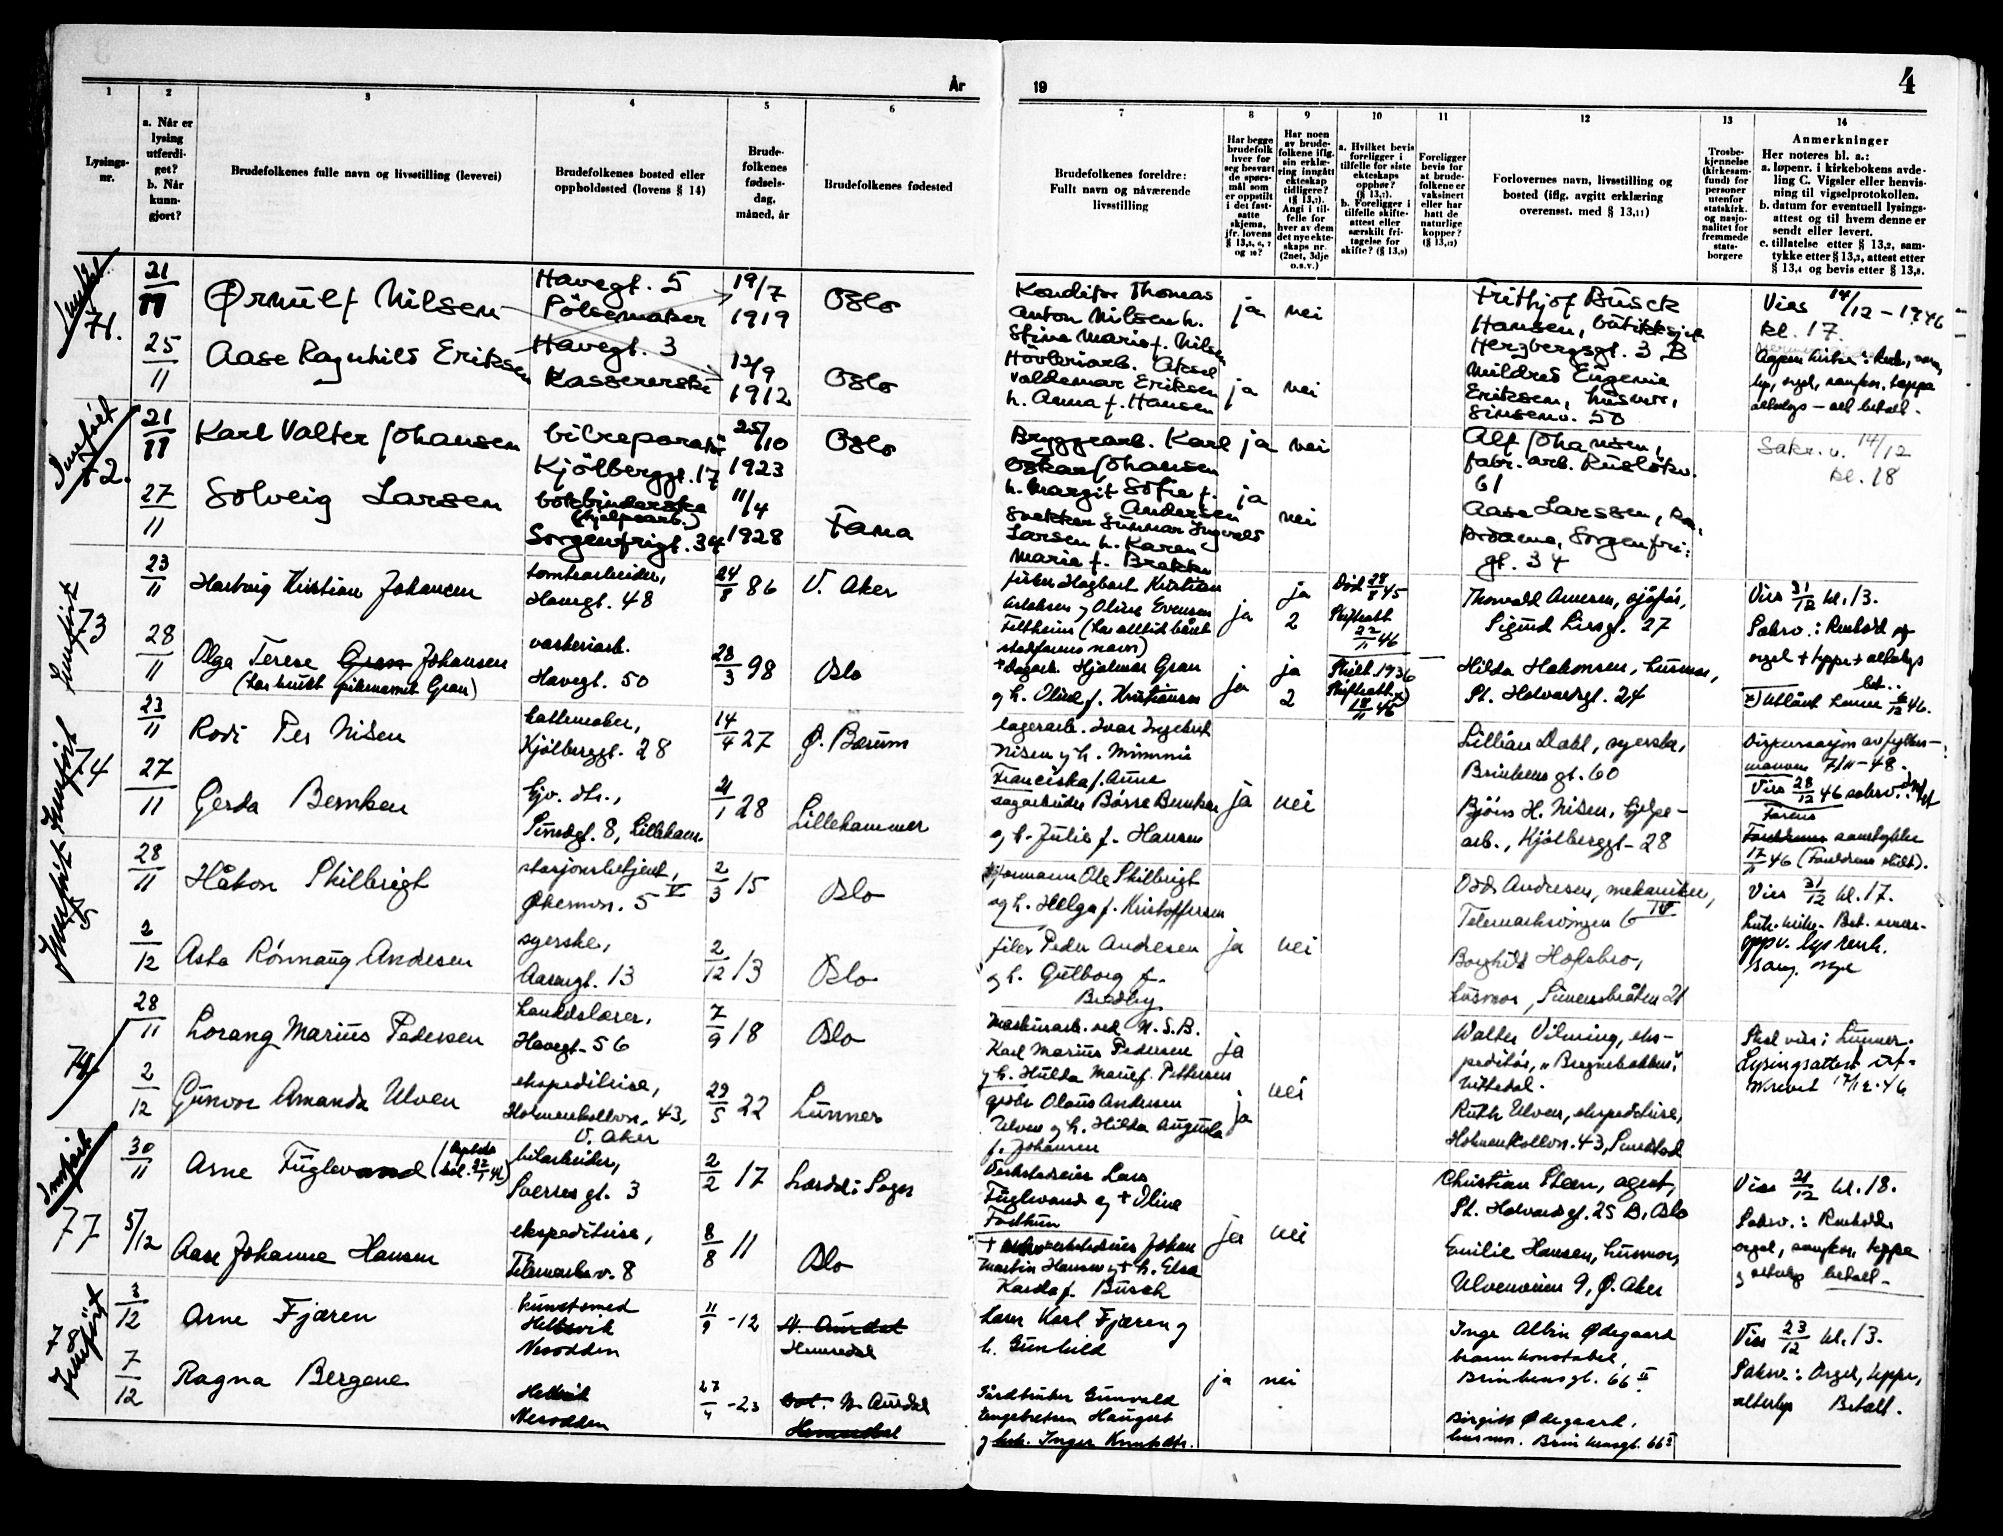 År
19
4
1
2
3
4
5
6
7
8
9
10
11
12
13
14
Lysings-
nr.
a. Når er
lysing
utferdi-
get?
b. Når
kunn-
gjort?
Brudefolkenes fulle navn og livsstilling (levevei)
Brudefolkenes bosted eller
oppholdssted (lovens § 14)
Brude-
folkenes
fødsels-
dag,
måned, år
Brudefolkenes fødested
Brudefolkenes foreldre:
Fullt navn og nåværende
livsstilling
Har begge
brudefolk
hver for
seg besvart
de spørs-
mål som
er oppstilt
i det fast-
satte
skjema,
jfr. lovens
§ 13,5, 6, 7
og 10?
Har noen
av brude-
folkene iflg.
sin erklæ-
ring inngått
ekteskap
tidligere?
(§ 13,7).
Angi i til-
felle for
hver av dem
det nye ekte-
skaps nr.
(2net, 3dje
o.s.v.)
a. Hvilket bevis
foreligger i
tilfelle for siste
ekteskaps
opphør?
(§ 13,7).
b. Foreligger i
tilfelle skifte-
attest eller
særskilt fri-
tagelse for
skifte? (§ 13,9)
Foreligger
bevis for
at brude-
folkene er
vaksinert
eller har
hatt de
naturlige
kopper?
(§ 13,12)
Forlovernes navn, livsstilling og
bosted (iflg. avgitt erklæring
overensst. med § 13,11)
Trosbe-
kjennelse
(kirkesam-
fund) for
personer
utenfor
statskirk.
og nasjo-
nalitet for
fremmede
stats-
borgere
Anmerkninger
Her noteres bl. a.:
a. løpenr. i kirkebokens avde-
ling C. Vigsler eller henvis-
ning til vigselprotokollen.
b. datum for eventuell lysings-
attest og til hvem denne er
sendt eller levert.
c. tillatelse etter § 13,2, sam-
tykke etter § 13,3, attest etter
§ 13,4 og bevis etter § 13,8.
71.
21/11
Ørnulf Nilsen
Havegt. 5
Pölsemaker
19/7
1919
Oslo
Konditor Thomas
Anton Nilsen h.
Stina Marie f. Nilsen
ja nei
Frithjof Busck
Hansen, butikksjef
Herzbergsgt. 3 B
Vies 14/12 - 1946
kl. 17.
25/11
Aase Ragnhild Eriksen
Havegt. 3
Kassererske
12/9
1912
Oslo
Høvleriarb. Aksel
Valdemar Eriksen
h. Anna f. Hansen
ja nei
Mildred Eugenie
Eriksen, husmor,
Sinsenv. 50
72.
21/11
Karl Valter Johansen
bilreparatør
Kjölberggt. 17
25/10
1923
Oslo
Bryggearb. Karl
Oskar Johansen
h. Margit Sofie f.
Andersen
ja nei
Alf Johansen,
fabr. arb. Rusløkv.
61
Sakr. v. 14/12
kl. 18
27/11
Solveig Larsen
bokbinderske
(hjelpearb.)
Sorgenfrigt. 34
11/4
1928
Fana
Snekker Gunnar Ingvald
Larsen h. Karen
Maria f. Brekke
ja nei
Aase Larssen,
Sorgenfri-
gt. 34
73
23/11
Hartvig Kristian Johansen
tomtearbeider,
Havegt. 48
24/8 86
V. Aker
fisker Hagbart Kristian
Karlsen og Oline Evensen
(har alltid båret
stedfarens navn)
ja
ja
2
Död 28/8 45
Skifteatt.
22/11 46
Thorvald Amesen, sjåför,
Sigurd Lies gt. 27
Vies 31/12 kl. 13.
Sakrv.: Renhold og
orgel + teppe + alterlys
bet..
28/11
Olga Terese Gran Johansen
(har brukt pikenavnet Gran)
vaskeriarb.
Havegt. 50
28/3 98
Oslo
+ dagarb. Hjalmar Gran
og h. Oline f. Kristiansen
ja
ja
2
Skilt. 1936
Skifteatt. x)
18/11 46
Hilda Hakonsen, husmor,
St. Halvardsgt. 24
x) Utlånt henne 6/12 46.
74
23/11
Rodi Per Nilsen
hattemaker,
Kjölberggt. 28
14/4 27
Ø. Bærum
lagerarb. Ivar Ingebret
Nilsen og h. Mimmie
Franciska f. Aune
Lillian Dahl, syerske,
Brinkens gt. 60
Dispensasjon av fylkes-
mannen 7/11 - 48.
27/11
Gerda Bemken
hjv. dtr.,
Lillehamr.
21/1 28
Lillehammer
sagarbeider Börre Bemken
og h. Julie f. Hansen
ja nei
Björn H. Nilsen, hjelpe-
arb., Kjölberggt. 28
Vies 28/12 46 sakrv.
Farens
samtykke
17/11 46 (Foreldrene skilt).
28/11
Håkon Skilbrigt
stasjonsbetjent,
Økernvn. 5 V
2/3 15
Oslo
formann Ole Skilbrigt
og h. Helga f. Kristoffersen
Odd Andresen, mekaniker,
Telemarksvingen 6 IV
Vies 31/12 kl. 17.
2/12
Asta Rønnaug Andresen
syerske,
Aasengt. 13
2/12 13
Oslo
filer Peder Andresen
og h. Gulborg f.
Bredby
ja nei
Borghild Hofsbro,
husmor, Simensbråten 21
oppv. lys renh.
76
28/11
Lorang Marius Pedersen
handelslærer,
Havegt. 56
7/9 18
Oslo
Maskinarb. ved N. S. B.
Karl Marius Pedersen
og h. Hulda Marie f. Pettersen
ja
nei
Walter Vilming, eks-
peditør, "Bregnebakken",
Nittedal.
Skal vies i Lunner.
Lysingsattest ut-
skrevet 17/12-46
2/12
Gunvor Amanda Ulven
ekspeditrise,
Holmenkollvn. 43,
V. Aker
29/5 22
Lunner
grdbr. Olaus Andersen
Ulven og h. Hilda Augusta
f. Johansen
ja
Ruth Ulven, ekspeditrise,
Holmenkollvn. 43,
Innført
77
30/11
Arne Fuglevand
bilarbeider,
Sverres gt. 3
2/2 17
Lærdal i Sogn
Verkstedeier Lars
Fuglevand og + Oline
Christian Steen, agent,
St. Halvardsgt. 25 B, Oslo
Vies 21/12 kl. 18.
Sakrv.: Renhold
orgel, sangkor, teppe
og alterlys betalt.
5/12
Aase Johanne Hansen
ekspeditrise,
Telemarksv. 8
8/8 11
Oslo
Johan
Martin Hansen og + h. Elsa
Karda f. Busch
ja nei
Emilie Hansen, husmor,
Ulvenveien 9, Ø. Aker
78
Innført
3/12
Arne Fjæren
kunstsmed
Hellvik
Nesodden
11/9 - 12
N. Aurdal
Hemsedal
Lars Karl Fjæren og
h. Gunhild
Inge Albin Ødegaard
brannkonstabel,
Brinkensgt. 66 II
Vies 23/12 kl. 13.
Sakrv.: Orgel, teppe,
alterlys Betalt.
7/12
Ragna Bergene
Hellvik
Nesodden
27/4 - 23
N. Aurdal
Hemsedal
Gårdbruker Gunvald
Engebretsen Haugset
og h. Inger Knutsdtr.
ja nei
Birgitt Ødegaard,
husmor. Brinkensgt. 66 II